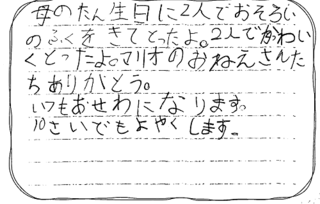 母のたん生日に2人でおそろい
のふくをきてとったよ。2人でかわい
くとったよ。マリオのおねえさんた
ちありがとう。
いつもおせわになります。
10さいでもよやくします。